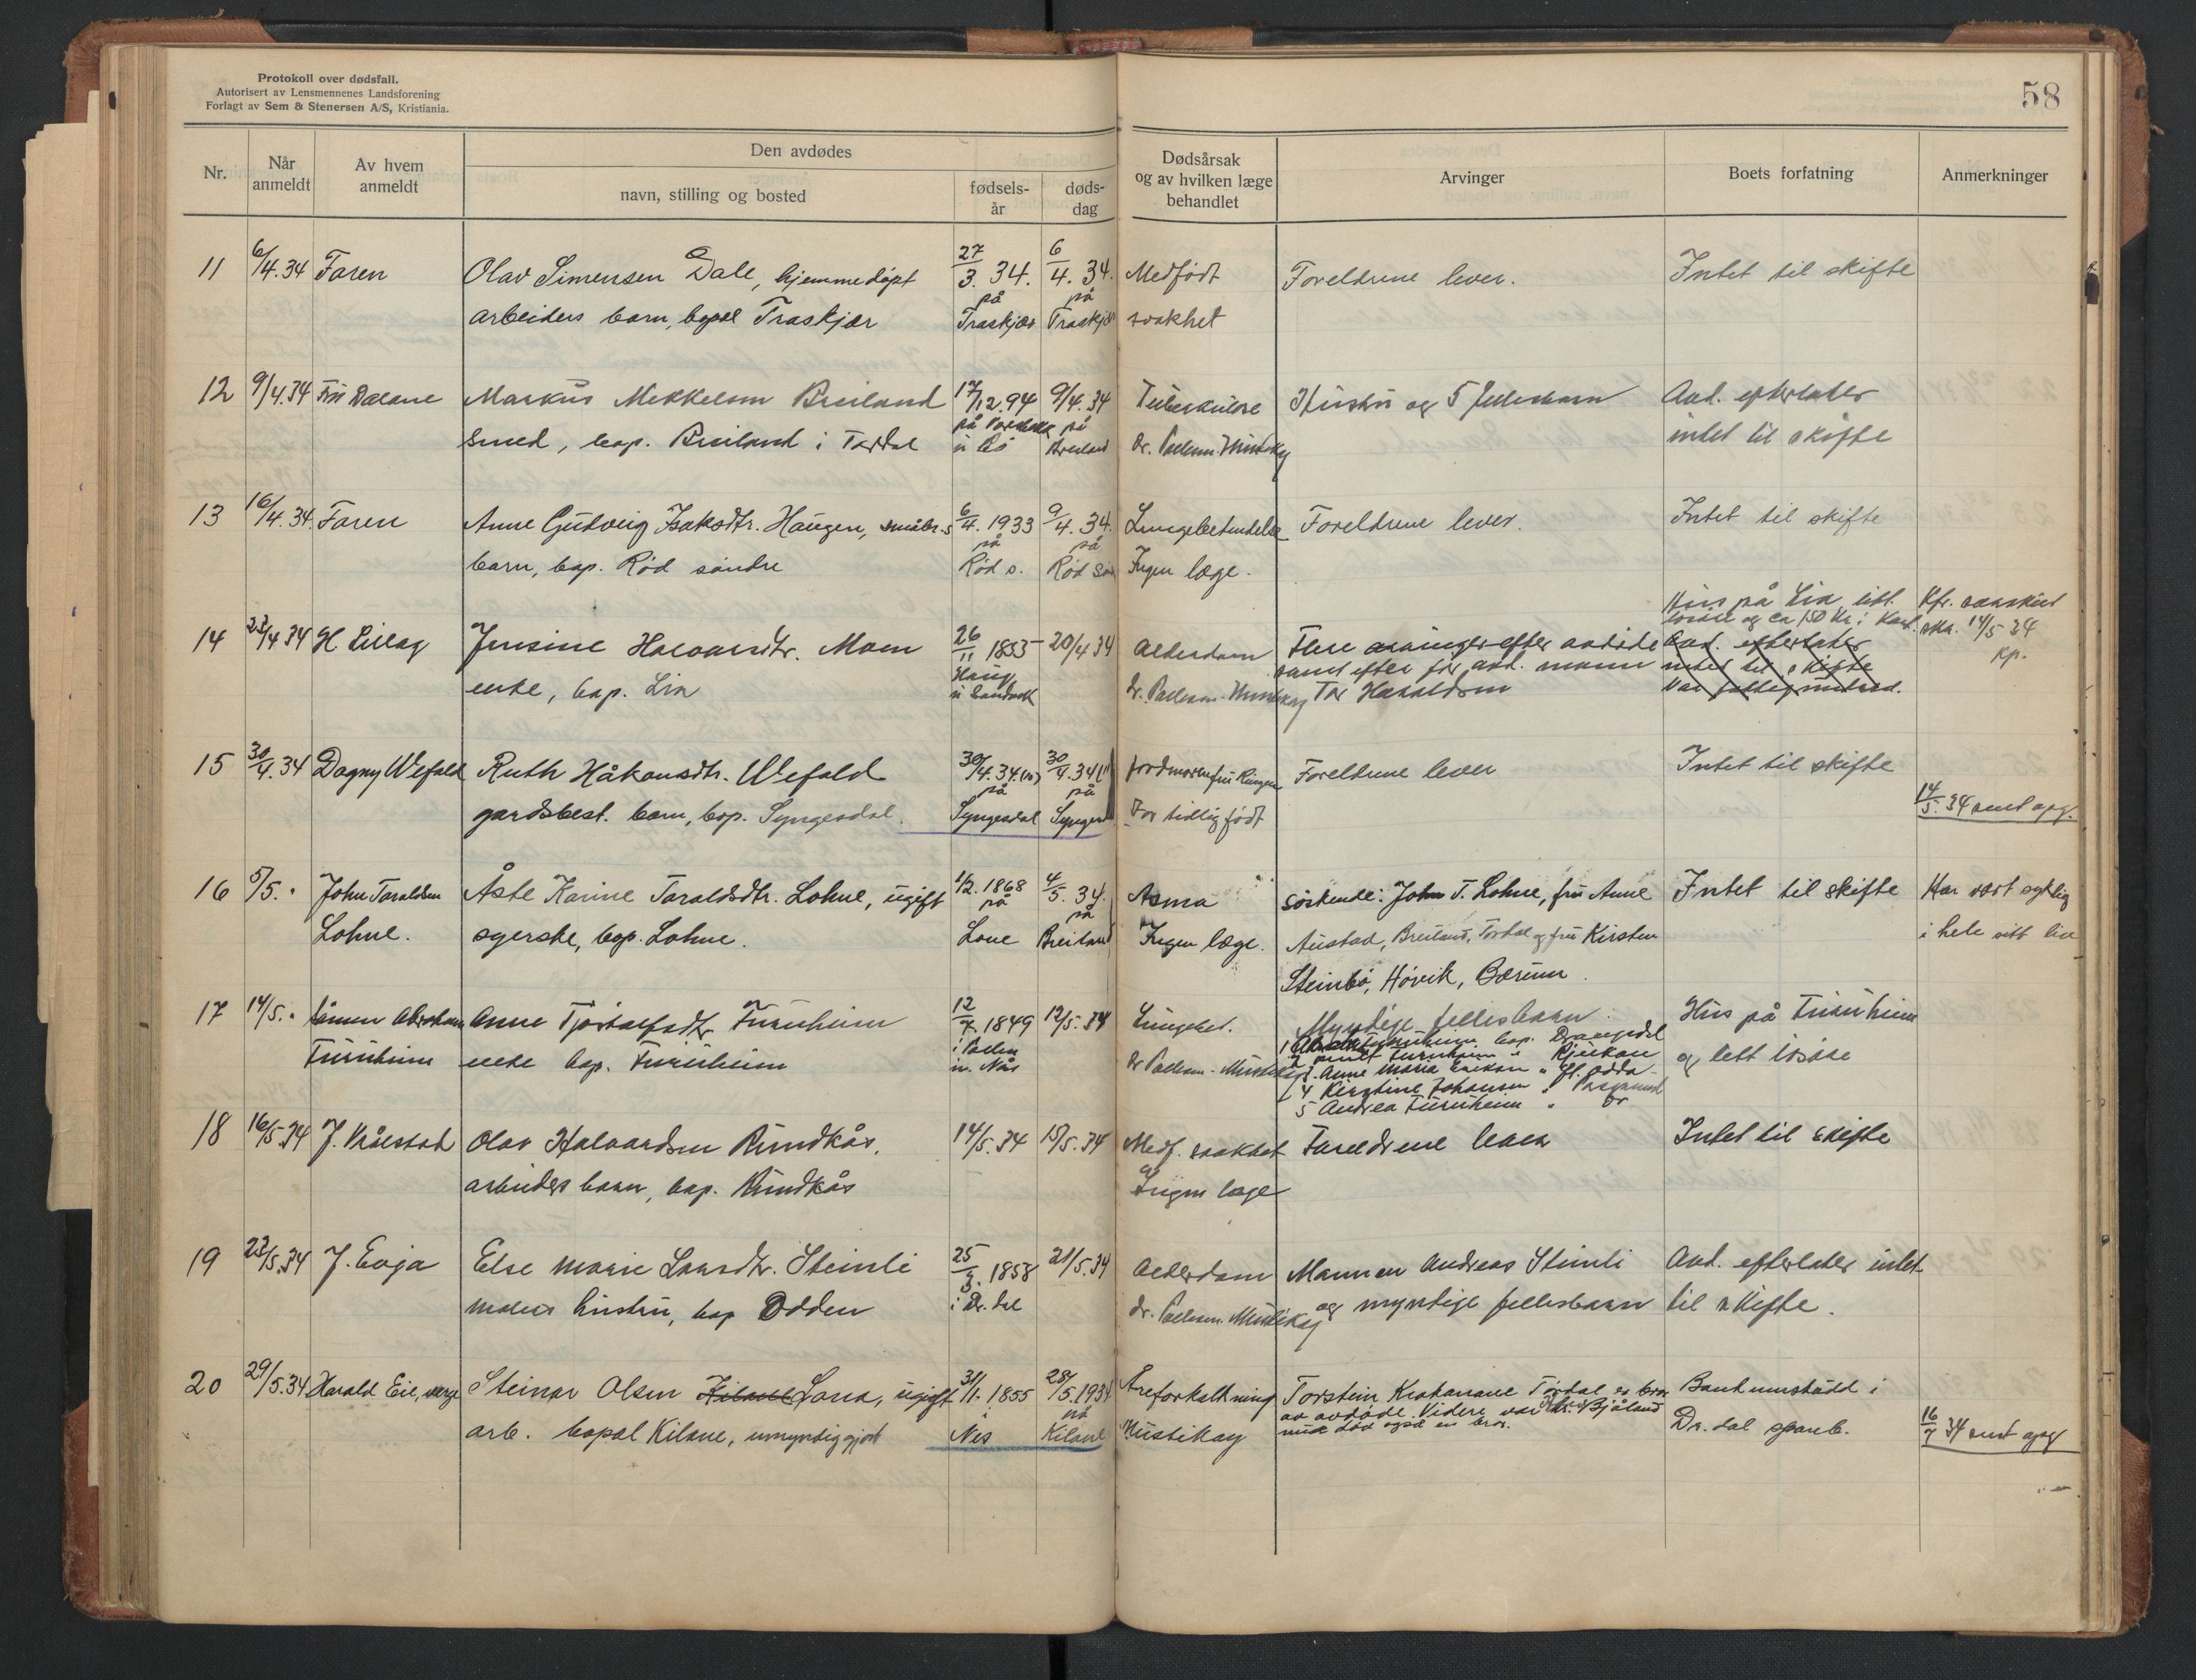 Protokoll over dødsfall.
Autorisert av Lensmennenes Landsforening
Forlagt av Sem & Stenersen A/S, Kristiania.
58
Nr.
Når anmeldt
Av hvem anmeldt
Den avdødes
navn, stilling og bosted
fødsels-år
døds-dag
Dødsårsak og av hvilken læge behandlet
Arvinger
Boets forfatning
Anmerkninger
11 6/4.34 Faren Olav Simensen Dale, hjemmedøpt 27/3.34. 6/4.34. Medfødt Foreldrene lever. Intet til skifte
på på
arbeiders barn, bopæl Traskjær Traskjær Traskjær svakhet
12 9/4.34 Markus Mikkelsen Breiland 17/12.94 9/4.34 Tuberkulose Hustru og 5 fellesbarn Avd. efterlater
på på
smed, bop. Breiland i Tørdal i Bø Breiland Dr. intet til skifte
13 16/4.34. Faren Anne Gudveig Isaksdtr. Haugen, småbr.s 6/4.1933 9/4.34. Lungebetendelse Foreldrene lever. Intet til skifte
på på
barn, bop. Rød søndre Rød s. Rød søn Ingen læge.
Hus på Lia litt Kfr.
løsøre og ca 150 kr. i 14/5 34
14 23/4 34 H Lillag Jensine Halvorsdtr. Moen 26/11 1853 20/4 34 Alderdom Flere arvinger efter avdøde Avd. efterlater Kp.
Haug samt efter før avd. mann intet til skifte
enke, bop. Lia i Sandvik Dr. Tor Haraldsen Var fattigunderst.
15 30/4.34 Dagny Wefald Ruth Håkonsdtr. Wefald 30/4.34 30/4.34 Jordmoren fru Ringen Foreldrene lever Intet til skifte
på på
gardsbest. barn, bop. Syngesdal. Syngesdal Syngesd For tidlig født 14/5.34 sent opg.
16 5/5. " John Taraldsen Åste Karine Taraldsdtr. Lohne, ugift 1/2.1868 4/5.34. Asma søskende: John T. Lohne, fru Anne Intet til skifte Har vært syklig
på på
Lohne. syerske, bop. Lohne. Lone Breiland Ingen læge. Austad, Breiland, Tørdal og fru Kirsten i hele sitt liv
Steinbø, Høvik, Bærum.
17 14/5. " Anne Furuheim 12/7.1849 12/5.34 Lungebet. Myndige fellesbarn Hus på Furuheim
Furuheim enke bop. Furuheim Furuheim bop. Drangedal og litt løsøre
Furuheim " Rjukan
3 Anne Maria
4 Kirstine Johansen "
5 Andrea Furuheim "
18 16/5.34 J. Vråvstad Olav Halvordsen Rundkås, 14/5.34 15/5.34 Medf. svakhet Foreldrene lever Intet til skifte
arbeiders barn, bop. Rundkås Ingen læge
19 23/5.34 J. Evja Else Marie Larsdtr. Steinli 25/3.1858 21/5.34 Alderdom Mannen Andreas Steinli Avd. efterlater intet
malers hustru, bop Odden i Dr.dal Dr. og myndige fellesbarn til skifte.
20 29/5.34 Harald Eie, verge Steinar Olsen Kilane Lona, ugift 31/1.1855 28/5.1934 Åreforkalkning Torstein Krokanane Tørdal er bror Bankinnskudd i
i på av avdøde. Videre var Bjåland
arb. bopæl Kilane, umyndiggjort Nes Kilane Mustikay død også en bror. Dr.dal spareb. 16/7 34 sent opg